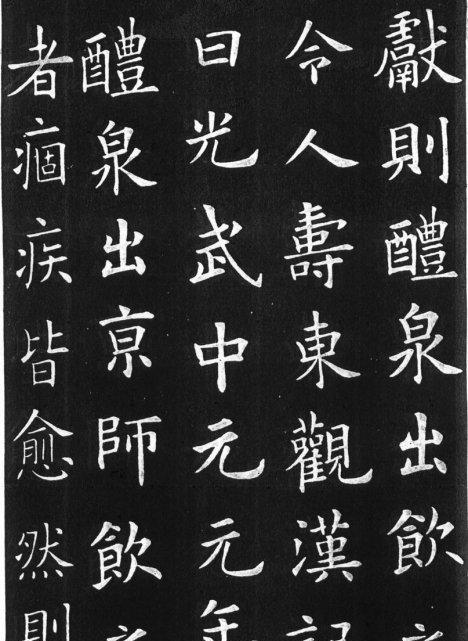 獻則醴泉出飲
令人壽東觀漢記
曰光武中元元年
醴泉出亰師飲
者痼疾皆愈然則